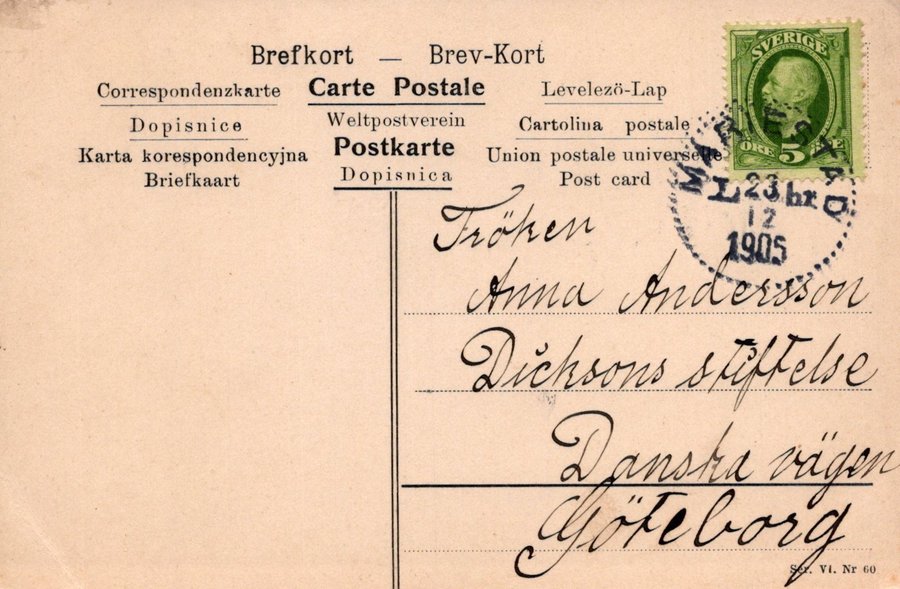 Brefkort — Brev-Kort
Correspondenzkarte Carte Postale Levelezö-Lap
Dopisnice Weltpostverein Cartolina postale
Karta korespondencyjna Postkarte Union postale universelle
Briefkaart Dopisnica Post card
SVERIGE
ÖRE 5 ÖRE
MARIESTAD
L 23 br
12
1905
Fröken
Anna Andersson
Dicksons stiftelse
Danska vägen
Göteborg
Ser. VI. Nr 60